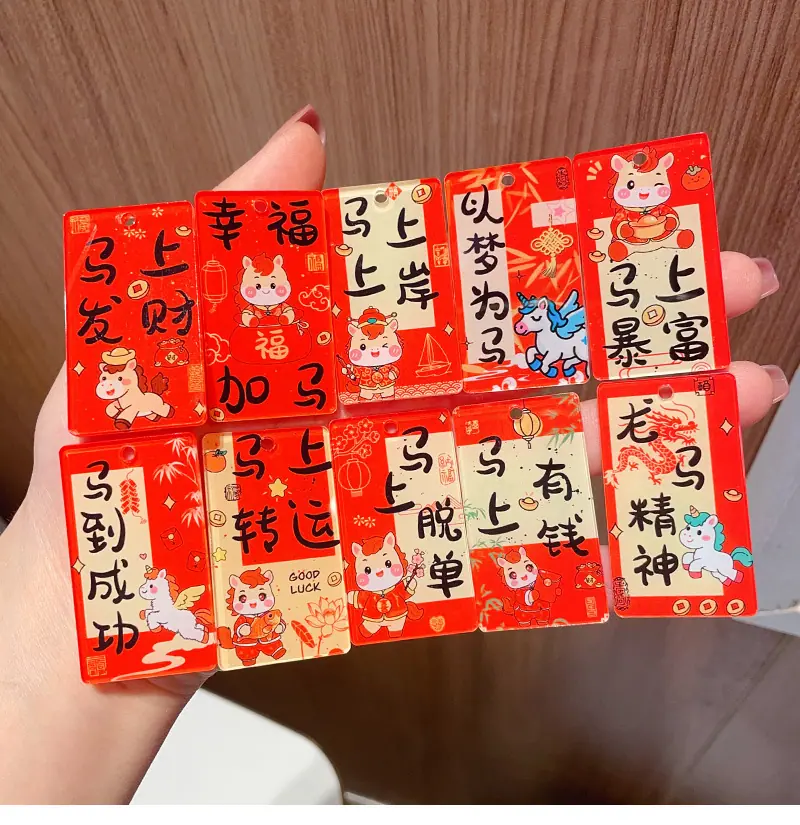 马上
发财
幸福
福
加马
马上
上岸
以梦为马
马上
暴富
马到成功
马上
转运
GOOD
LUCK
马上
脱单
马上
有钱
龙马
精神